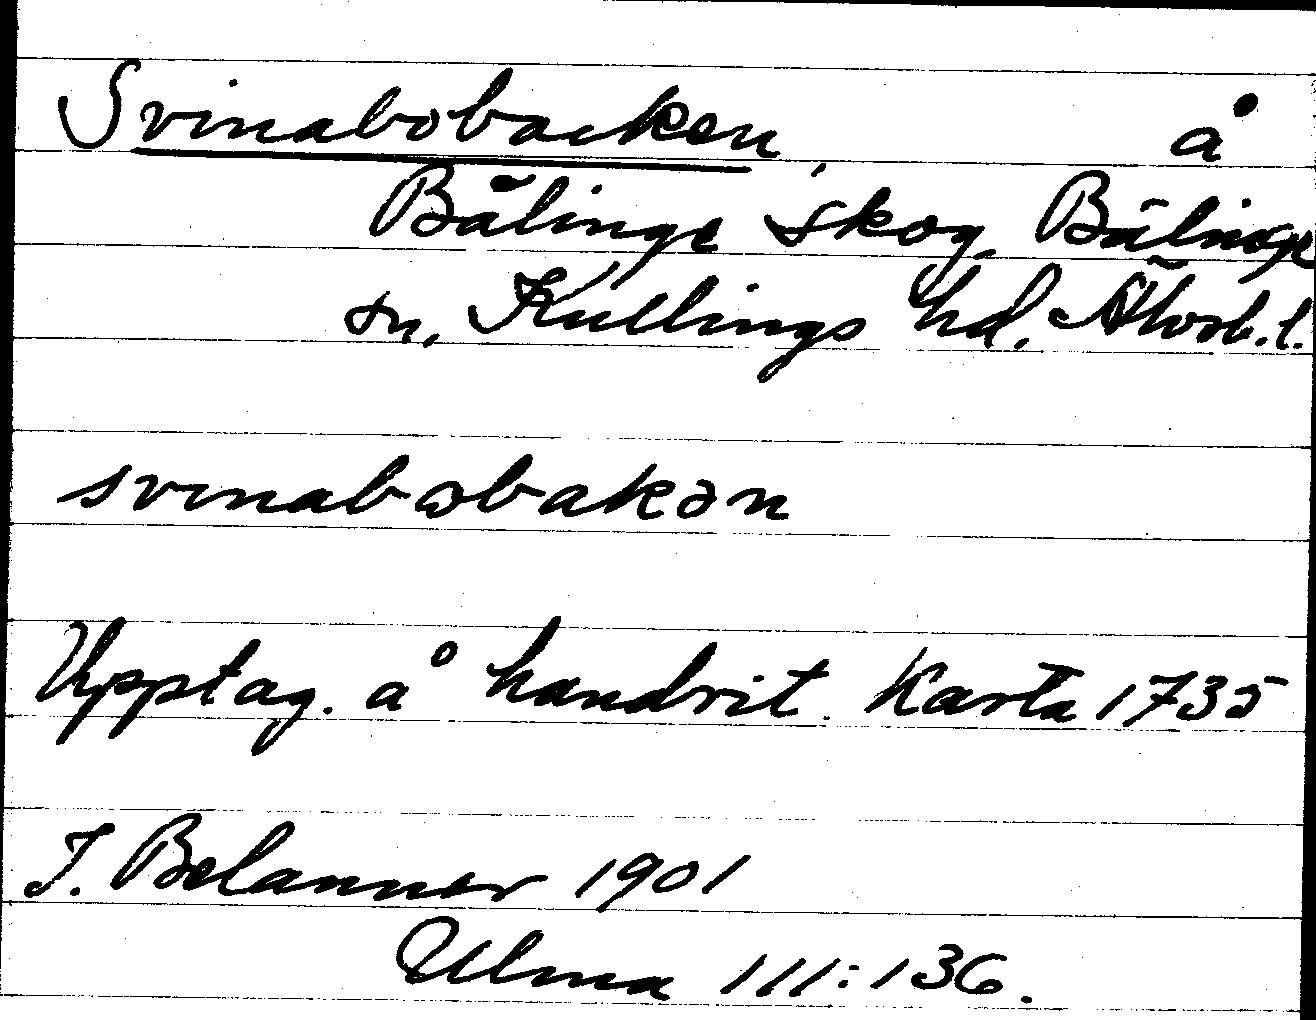 Svinabobacken, å
Bälinge skog, Bälinge
sn, Kullings hd. Älvsb.l.
svinabωbakən
Upptag. å handrit. Karta 1735
T. Belanner 1901
Ulma 111:136.